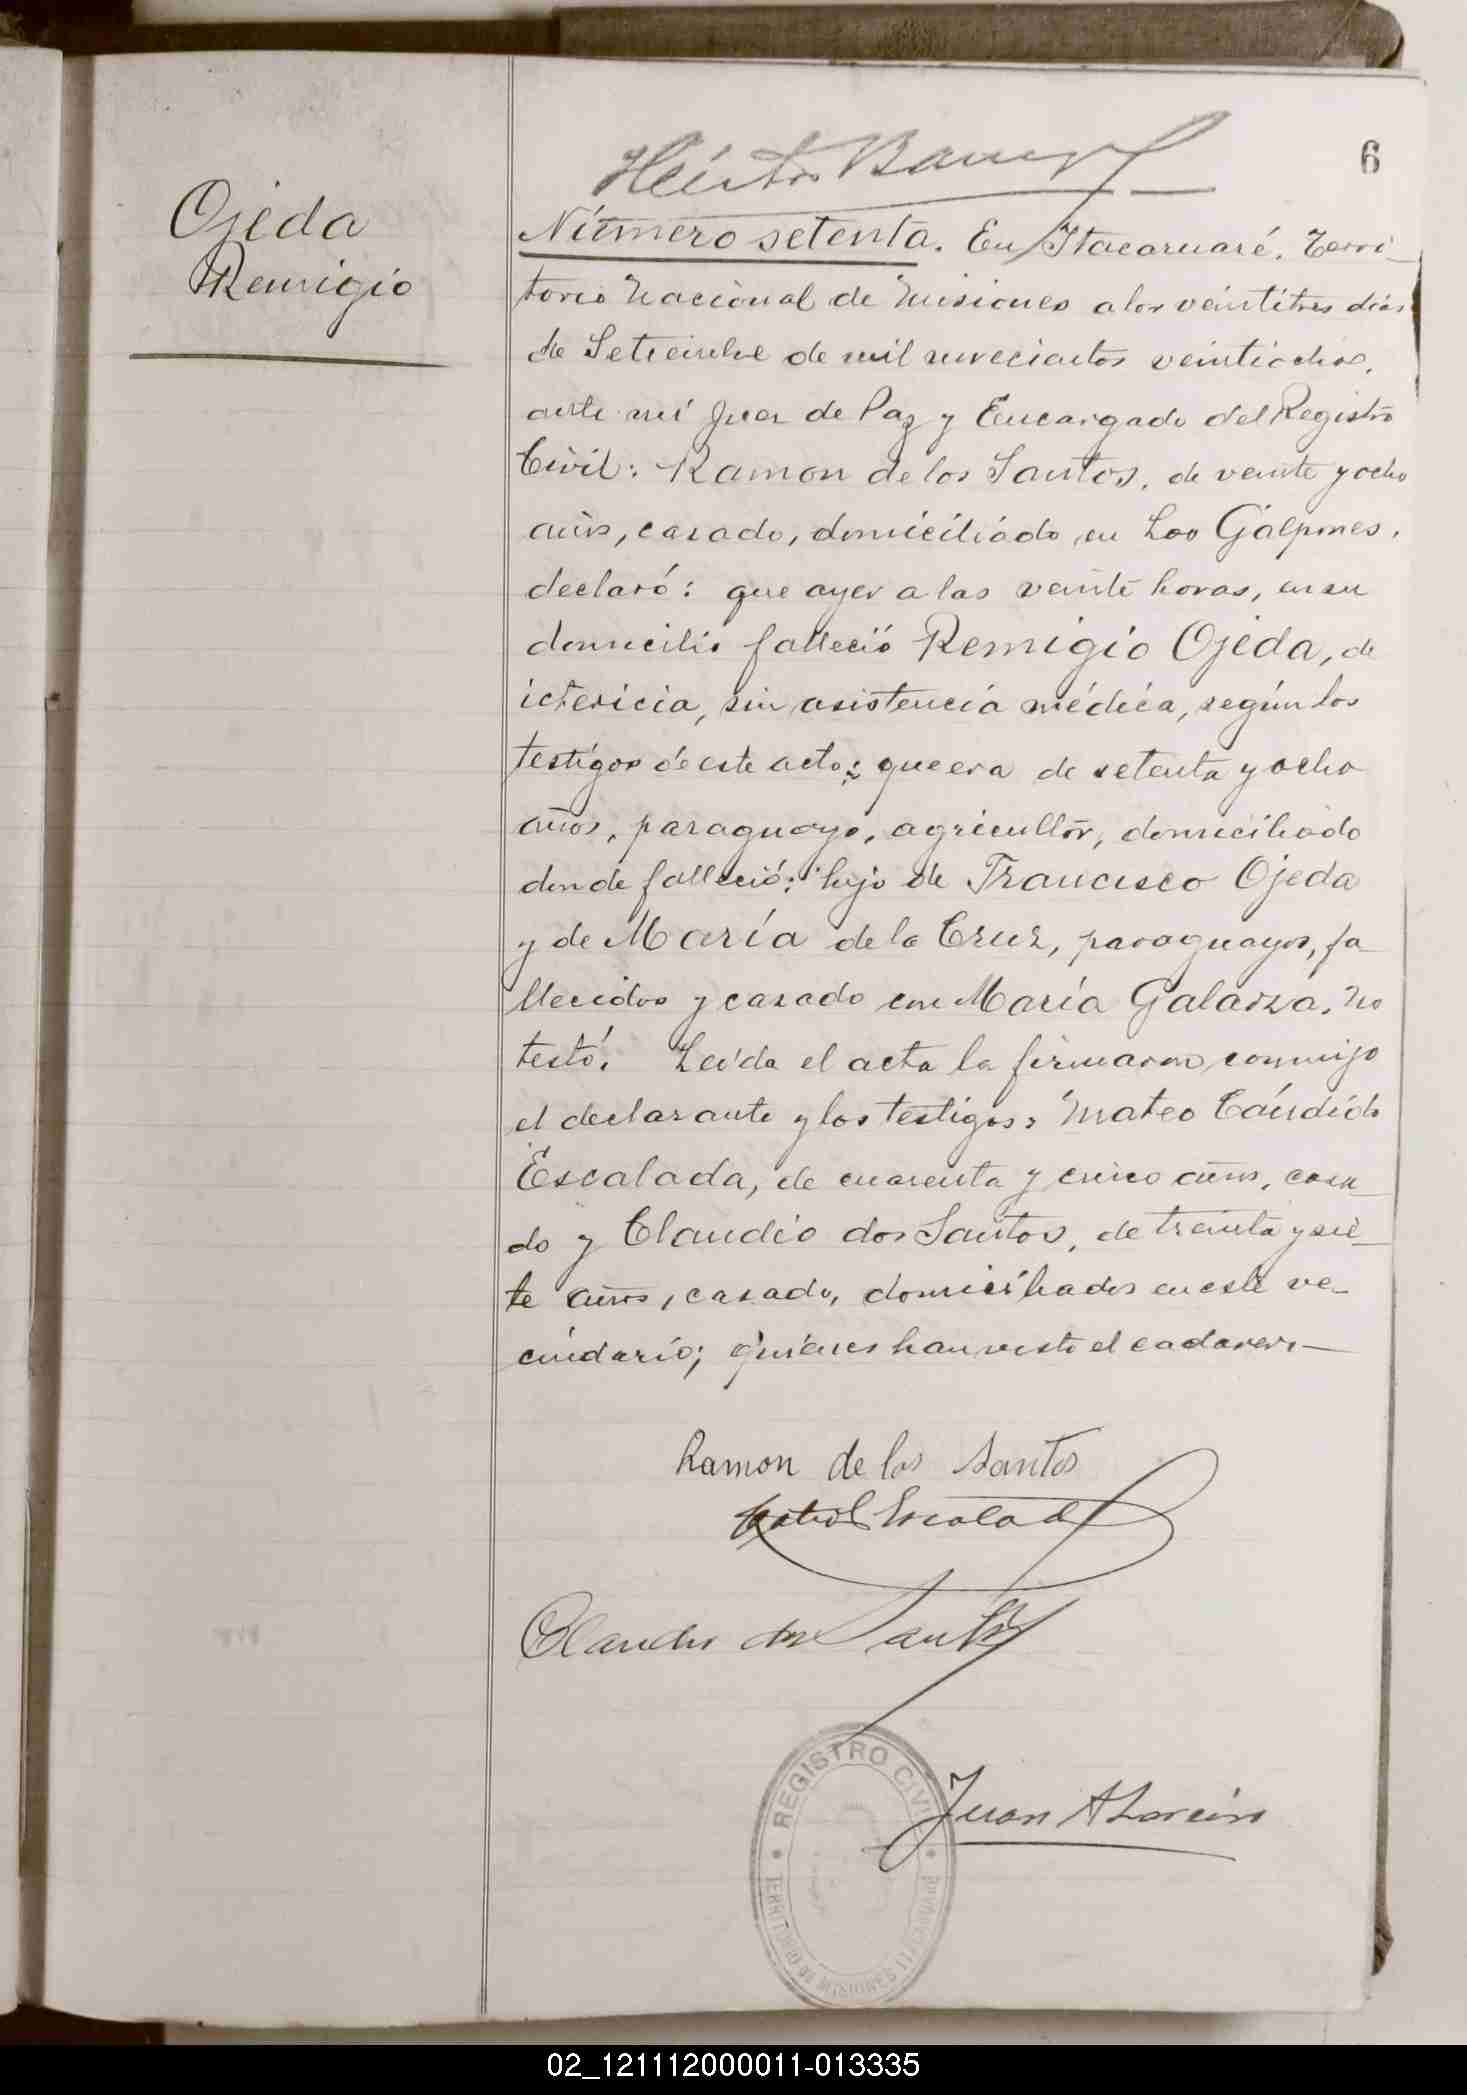 6
Ojeda
Remigio
Número setenta. En Itacaruaré, Terri-
torio Nacional de Misiones a los veintitres dias
de Setiembre de mil novecientos veintiocho,
ante mí Juez de Paz y Encargado del Registro
Civil: Ramon de los Santos, de veinte y ocho
años, casado, domiciliado en Los Galpones,
declaró: que ayer a las veinte horas, en su
domicilio falleció Remigio Ojeda, de
ictericia, sin asistencia médica, según los
testigos de este acto; que era de setenta y ocho
años, paraguayo, agricultor, domiciliado
donde falleció; hijo de Francisco Ojeda
y de María de la Cruz, paraguayos, fa-
llecidos y casado con María Galarza. No
testó. Leída el acta la firmaron conmigo
el declarante y los testigos: Mateo Cándido
Escalada, de cuarenta y cinco años, casa-
do y Claudio dos Santos, de treinta y sie-
te años, casado, domiciliados en este ve-
cindario; quienes han visto el cadaver.—
Ramon de los Santos
Escalada
Claudio dos Santos
Juan A
REGISTRO CIVIL
02_121112000011-013335